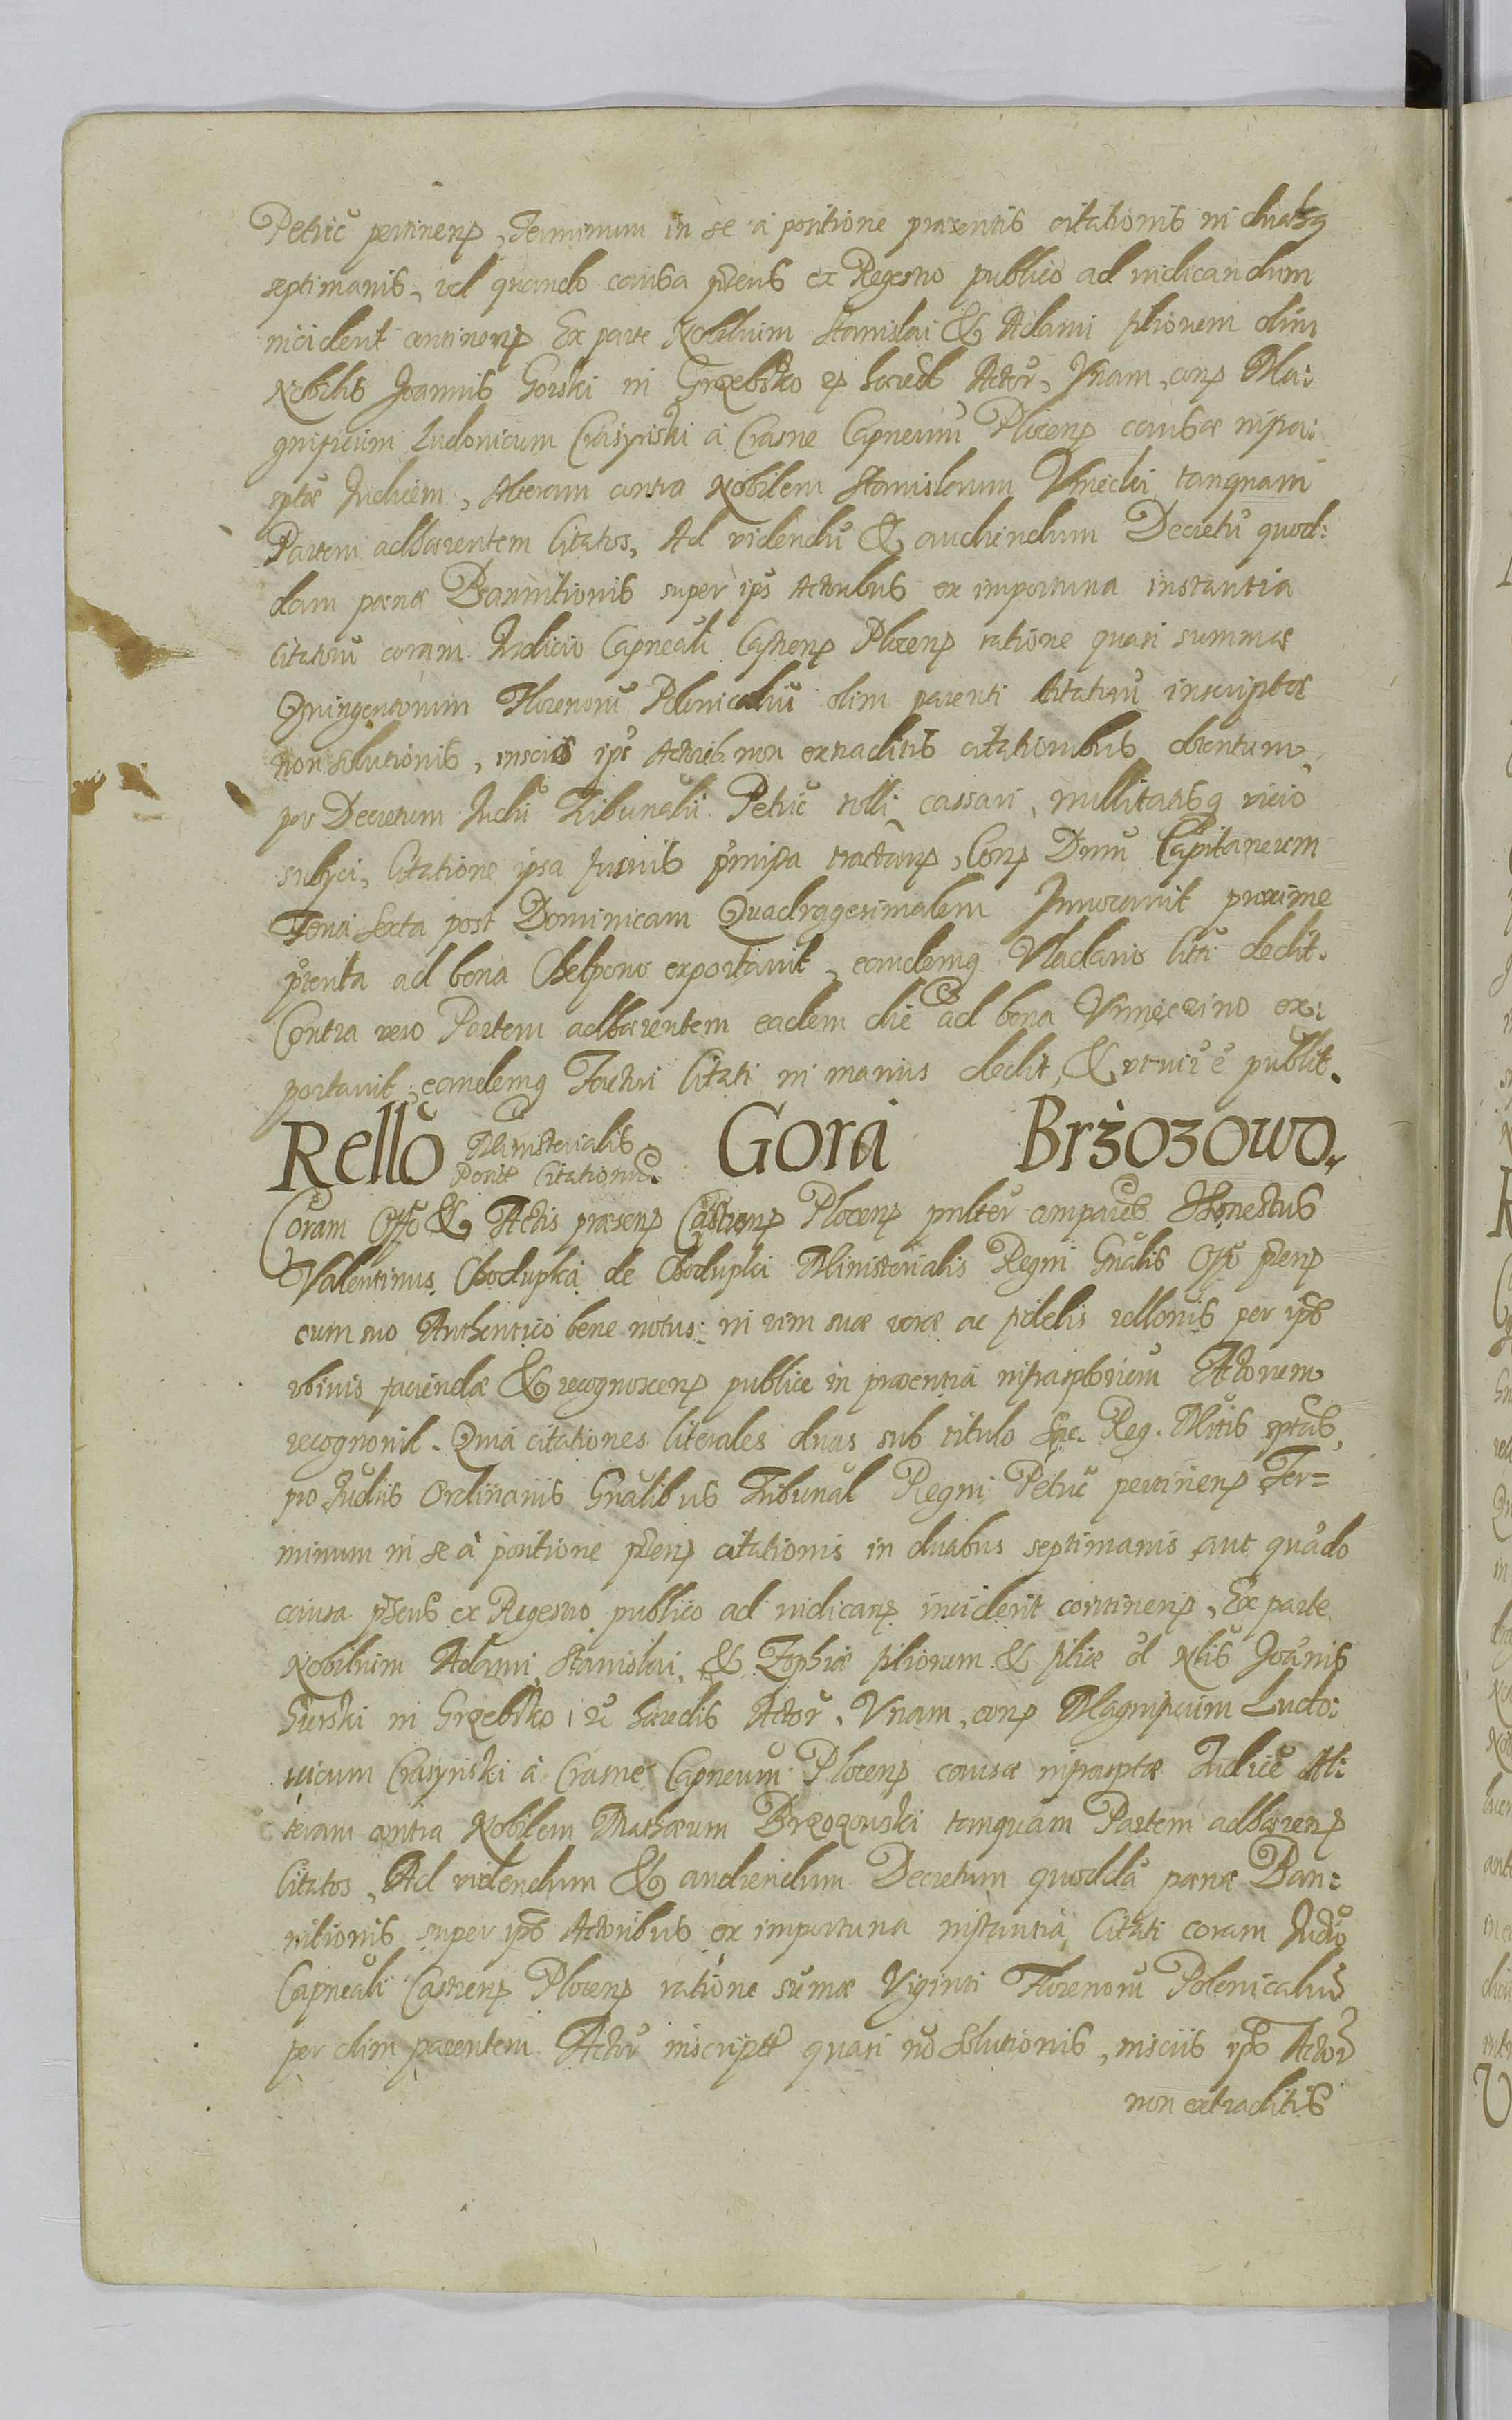 Petric pertinen, Terminum in se à positione praesentis citationis in duabsq
septimanis, vel quando causa pñs ex Regestro publico ad iudicandum
inciderit continen Ex parte Nobilium Stanislai & Adami filiorum olim
Nobilis Joannis Gorski in Grzebsko hæred Actor, Vnam, con Ma:
gnificum Ludouicum Crasynski à Crasne Capneum Plocen causæ infra:
sptæ Iudicem, Alteram contra Nobilem Stanislaum Vmiecki tanquam
Partem adhærentem Citatos, Ad videndũ & audiendum Decretũ quod:
dam pœnæ Bannitionis super ips Actoribus ex importuna instantia
citatorũ coram Iudicio Capneali Castren Plocen ratione quasi summæ
Quingentorum Florenorũ Polonicaliũ olim parenti Citatorũ inscriptæ
non solutionis, insciis ips Actorib. non extraditis citationibus, obtentum,
per Decretum Iudij Tribunalis Petric tolli, cassari, nullitatisq vicio
subijci, Citatione ipsa fusius pmissa tractan, Con Dnũ Capitaneum
Feria Sexta post Dominicam Quadragesimalem Inuocauit proxime
prterita ad bona Chelpono exportauit, eandemq Vladario litri dedit.
Contra vero Partem adhærentem eadem die ad bona Vmieczino ex:
portauit, eandemq Factori Citati in manus dedit, & publit.
Rello Ministerialis Gora Brzozowo,
Posit Citationũ.
Coram Offo & Actis præsen Castren Plocen psnlter comparens Honestus
Valentinus Chodupka de Chodupki Ministerialis Regni Gnalis Offo pñen
cum suo Authentico bene notus: in vim suæ veræ ac fidelis rellonis per ips
vbiuis faciendæ & recognoscen publice in præsentia infrasptorum Actorum
recognouit. Quia citationes literales duas sub titulo Sac. Reg. Mttis sptas,
pro Iudiis Ordinariis Gnalibus Tribunal Regni Petric pertinen Ter=
minum in se à positione pñen citationis in duabus septimanis aut quãdo
causa pñs ex Regestro publico ad iudican inciderit continen, Ex parte
Nobilium Adami, Stanislai, & Zophiæ filiorum & filiæ ol Nlis Joãnis
Gurski in Grzebsko, hæredis Actor, Vnam, con Magnificum Ludo:
uicum Crasynski à Crasne Capneum Plocen causæ infrasptæ Iudicẽ Al:
teram contra Nobilem Mathæum Brzozowski tanquam Partem adhæren
Citatos, Ad videndum & audiendum Decretum quoddã pœnæ Ban:
nitionis super ips Actoribus ex importuna instantia Citati coram Iudio
Capneali Castren Plocen ratione sumæ Viginti Florenorũ Polonicaliũ
per olim parentem Actor inscriptæ quasi nõ Solutionis, insciis ips Actor
non extraditis